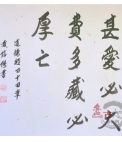 甚愛必大
費多藏必
厚亡
道德經四十四章
書